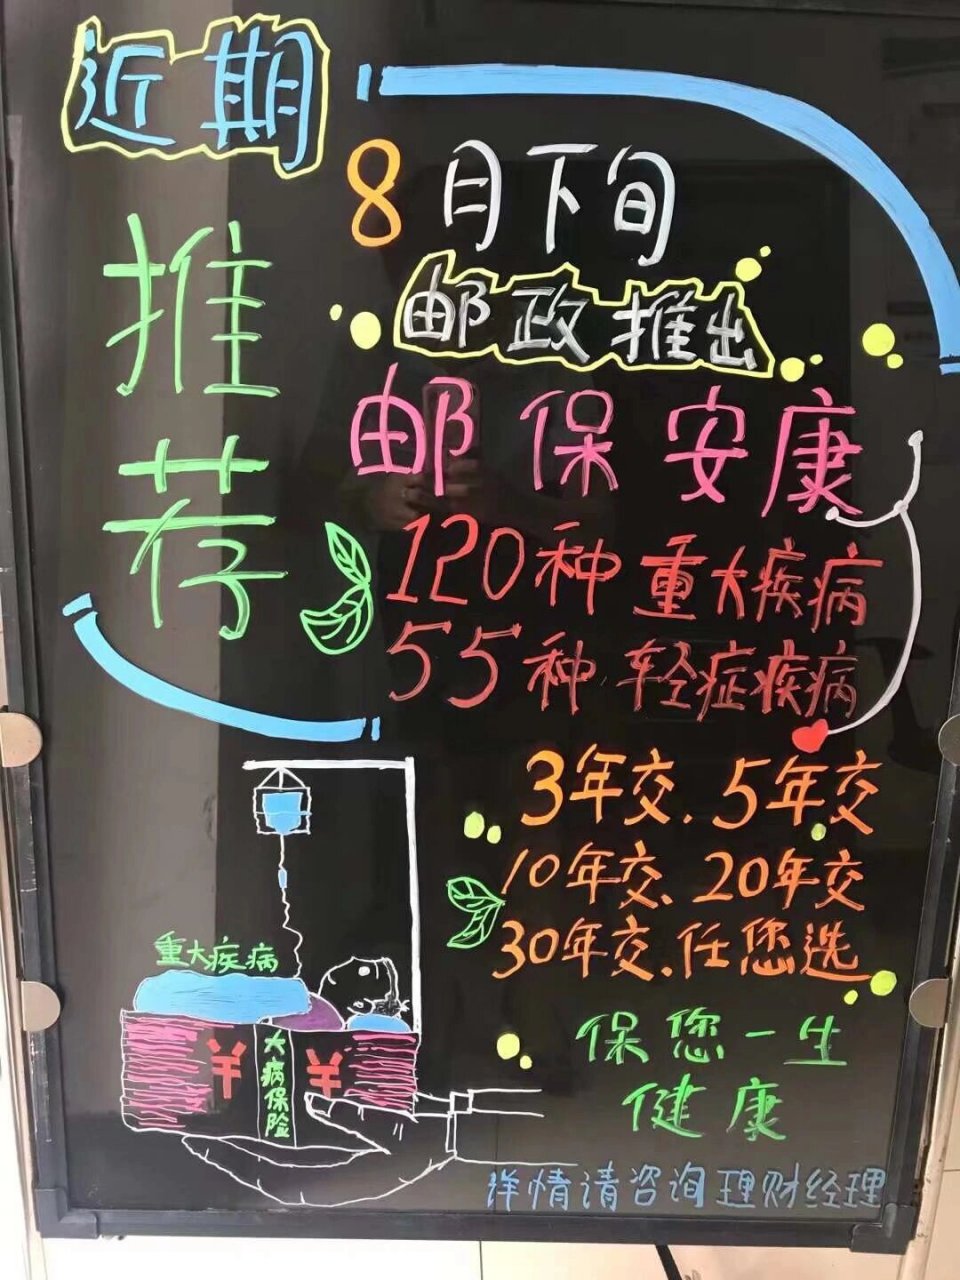 近期
推荐
8月下旬
邮政推出
邮保安康
120种重大疾病
55种轻症疾病
3年交、5年交
10年交、20年交
30年交、任您选
保您一生
健康
重大疾病
¥ ¥
大病保险
详情请咨询理财经理